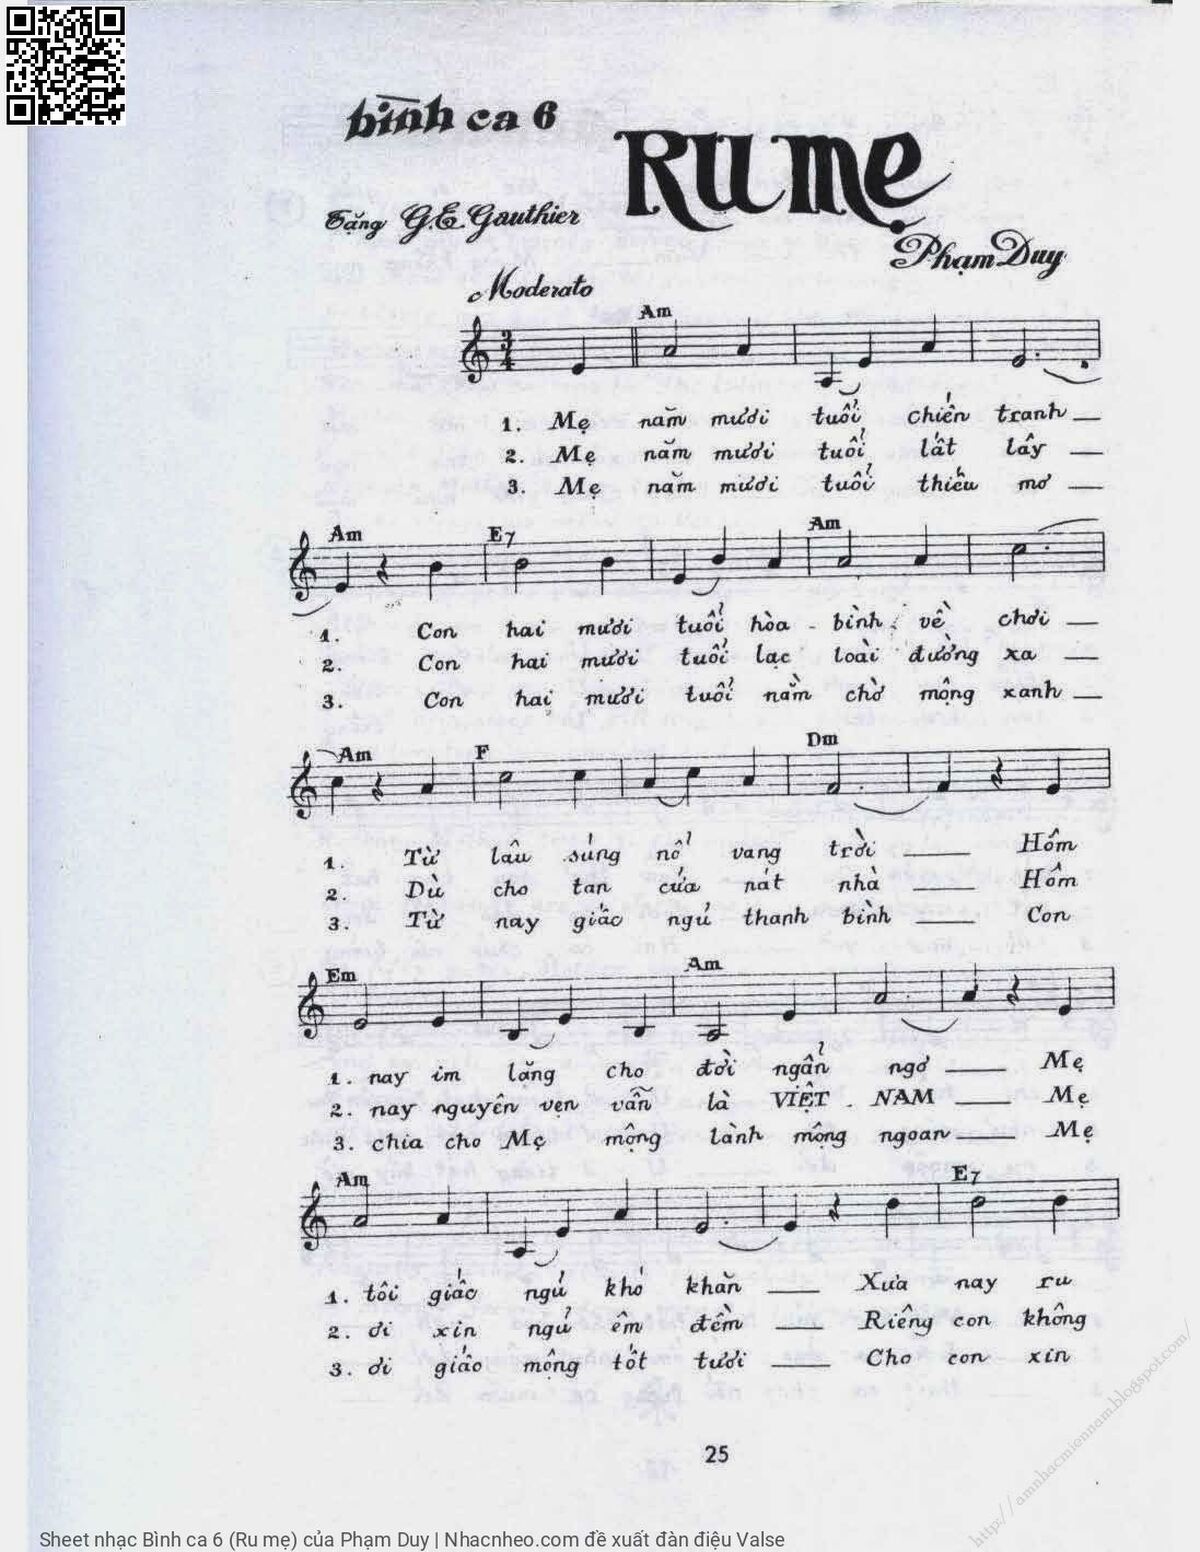 bình ca 6
Ru mẹ
Tặng G.E. Gauthier
Phạm Duy
Moderato
Am
3
4
1. Mẹ năm mươi tuổi chiến tranh
2. Mẹ năm mươi tuổi lất lây
3. Mẹ năm mươi tuổi thiếu mơ
Am E7 Am
1. Con hai mươi tuổi hòa - bình về chơi
2. Con hai mươi tuổi lạc loài đường xa
3. Con hai mươi tuổi nằm chờ mộng xanh
Am F Dm
1. Từ lâu súng nổ vang trời Hôm
2. Dù cho tan cửa nát nhà Hôm
3. Từ nay giấc ngủ thanh bình Con
Em Am
1. nay im lặng cho đời ngẩn ngơ Mẹ
2. nay nguyên vẹn vẫn là VIỆT - NAM Mẹ
3. chia cho Mẹ mộng lành mộng ngoan Mẹ
Am E7
1. tôi giấc ngủ khó khăn Xưa nay ru
2. ơi xin ngủ êm đềm Riêng con không
3. ơi giấc mộng tốt tươi Cho con xin
25
http://amnhacmiennam.blogspot.com/
Sheet nhạc Bình ca 6 (Ru mẹ) của Phạm Duy | Nhacnheo.com đề xuất đàn điệu Valse